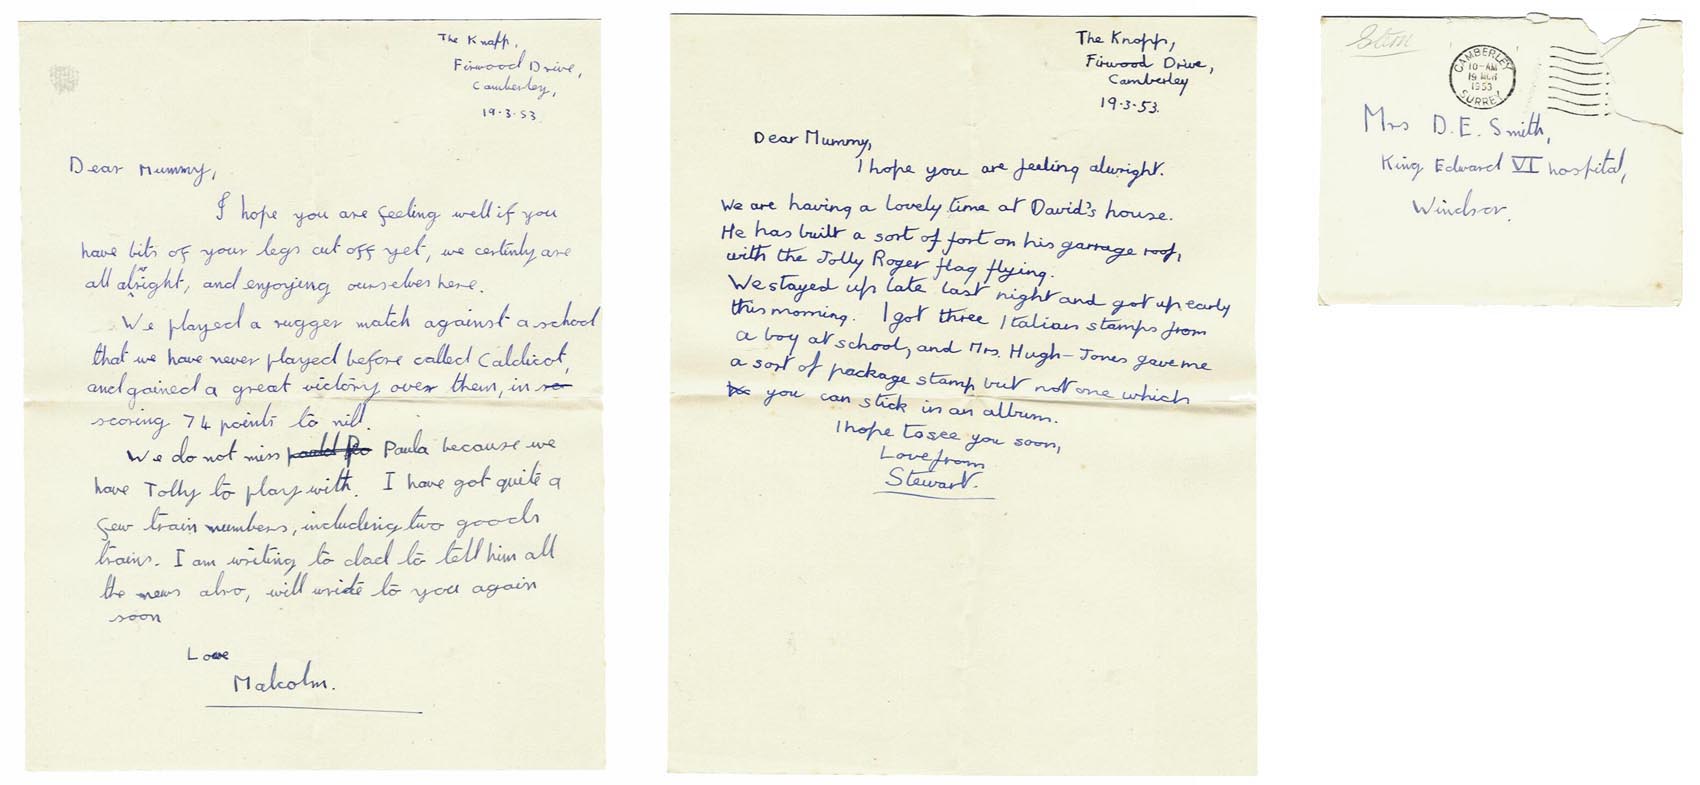 The Knapp,
Firwood Drive,
Camberley,
19.3.53
Dear Mummy,
I hope you are feeling well if you
have bits of your legs cut off yet, we certinly are
all alwright, and enjoying ourselves here.
We played a rugger match against a school
that we have never played before called Caldicot,
and gained a great victory over them, in
scoring 74 points to nill.
We do not miss Paula because we
have Tolly to play with. I have got quite a
few train numbers, including two goods
trains. I am writing to dad to tell him all
the news also, will write to you again
soon
Love
Malcolm.
The Knopp,
Firwood Drive,
Camberley
19.3.53.
Dear Mummy,
I hope you are feeling alwright.
We are having a lovely time at David's house.
He has built a sort of fort on his garrage roof,
with the Jolly Roger flag flying.
We stayed up late last night and got up early
this morning. I got three Italian stamps from
a boy at school, and Mrs. Hugh-Jones gave me
a sort of package stamp but not one which
you can stick in an album.
I hope to see you soon,
Love from
Stewart.
CAMBERLEY
10-AM
19 MCH
1953
SURREY
Mrs D.E. Smith,
King Edward VI hospital,
Windsor.